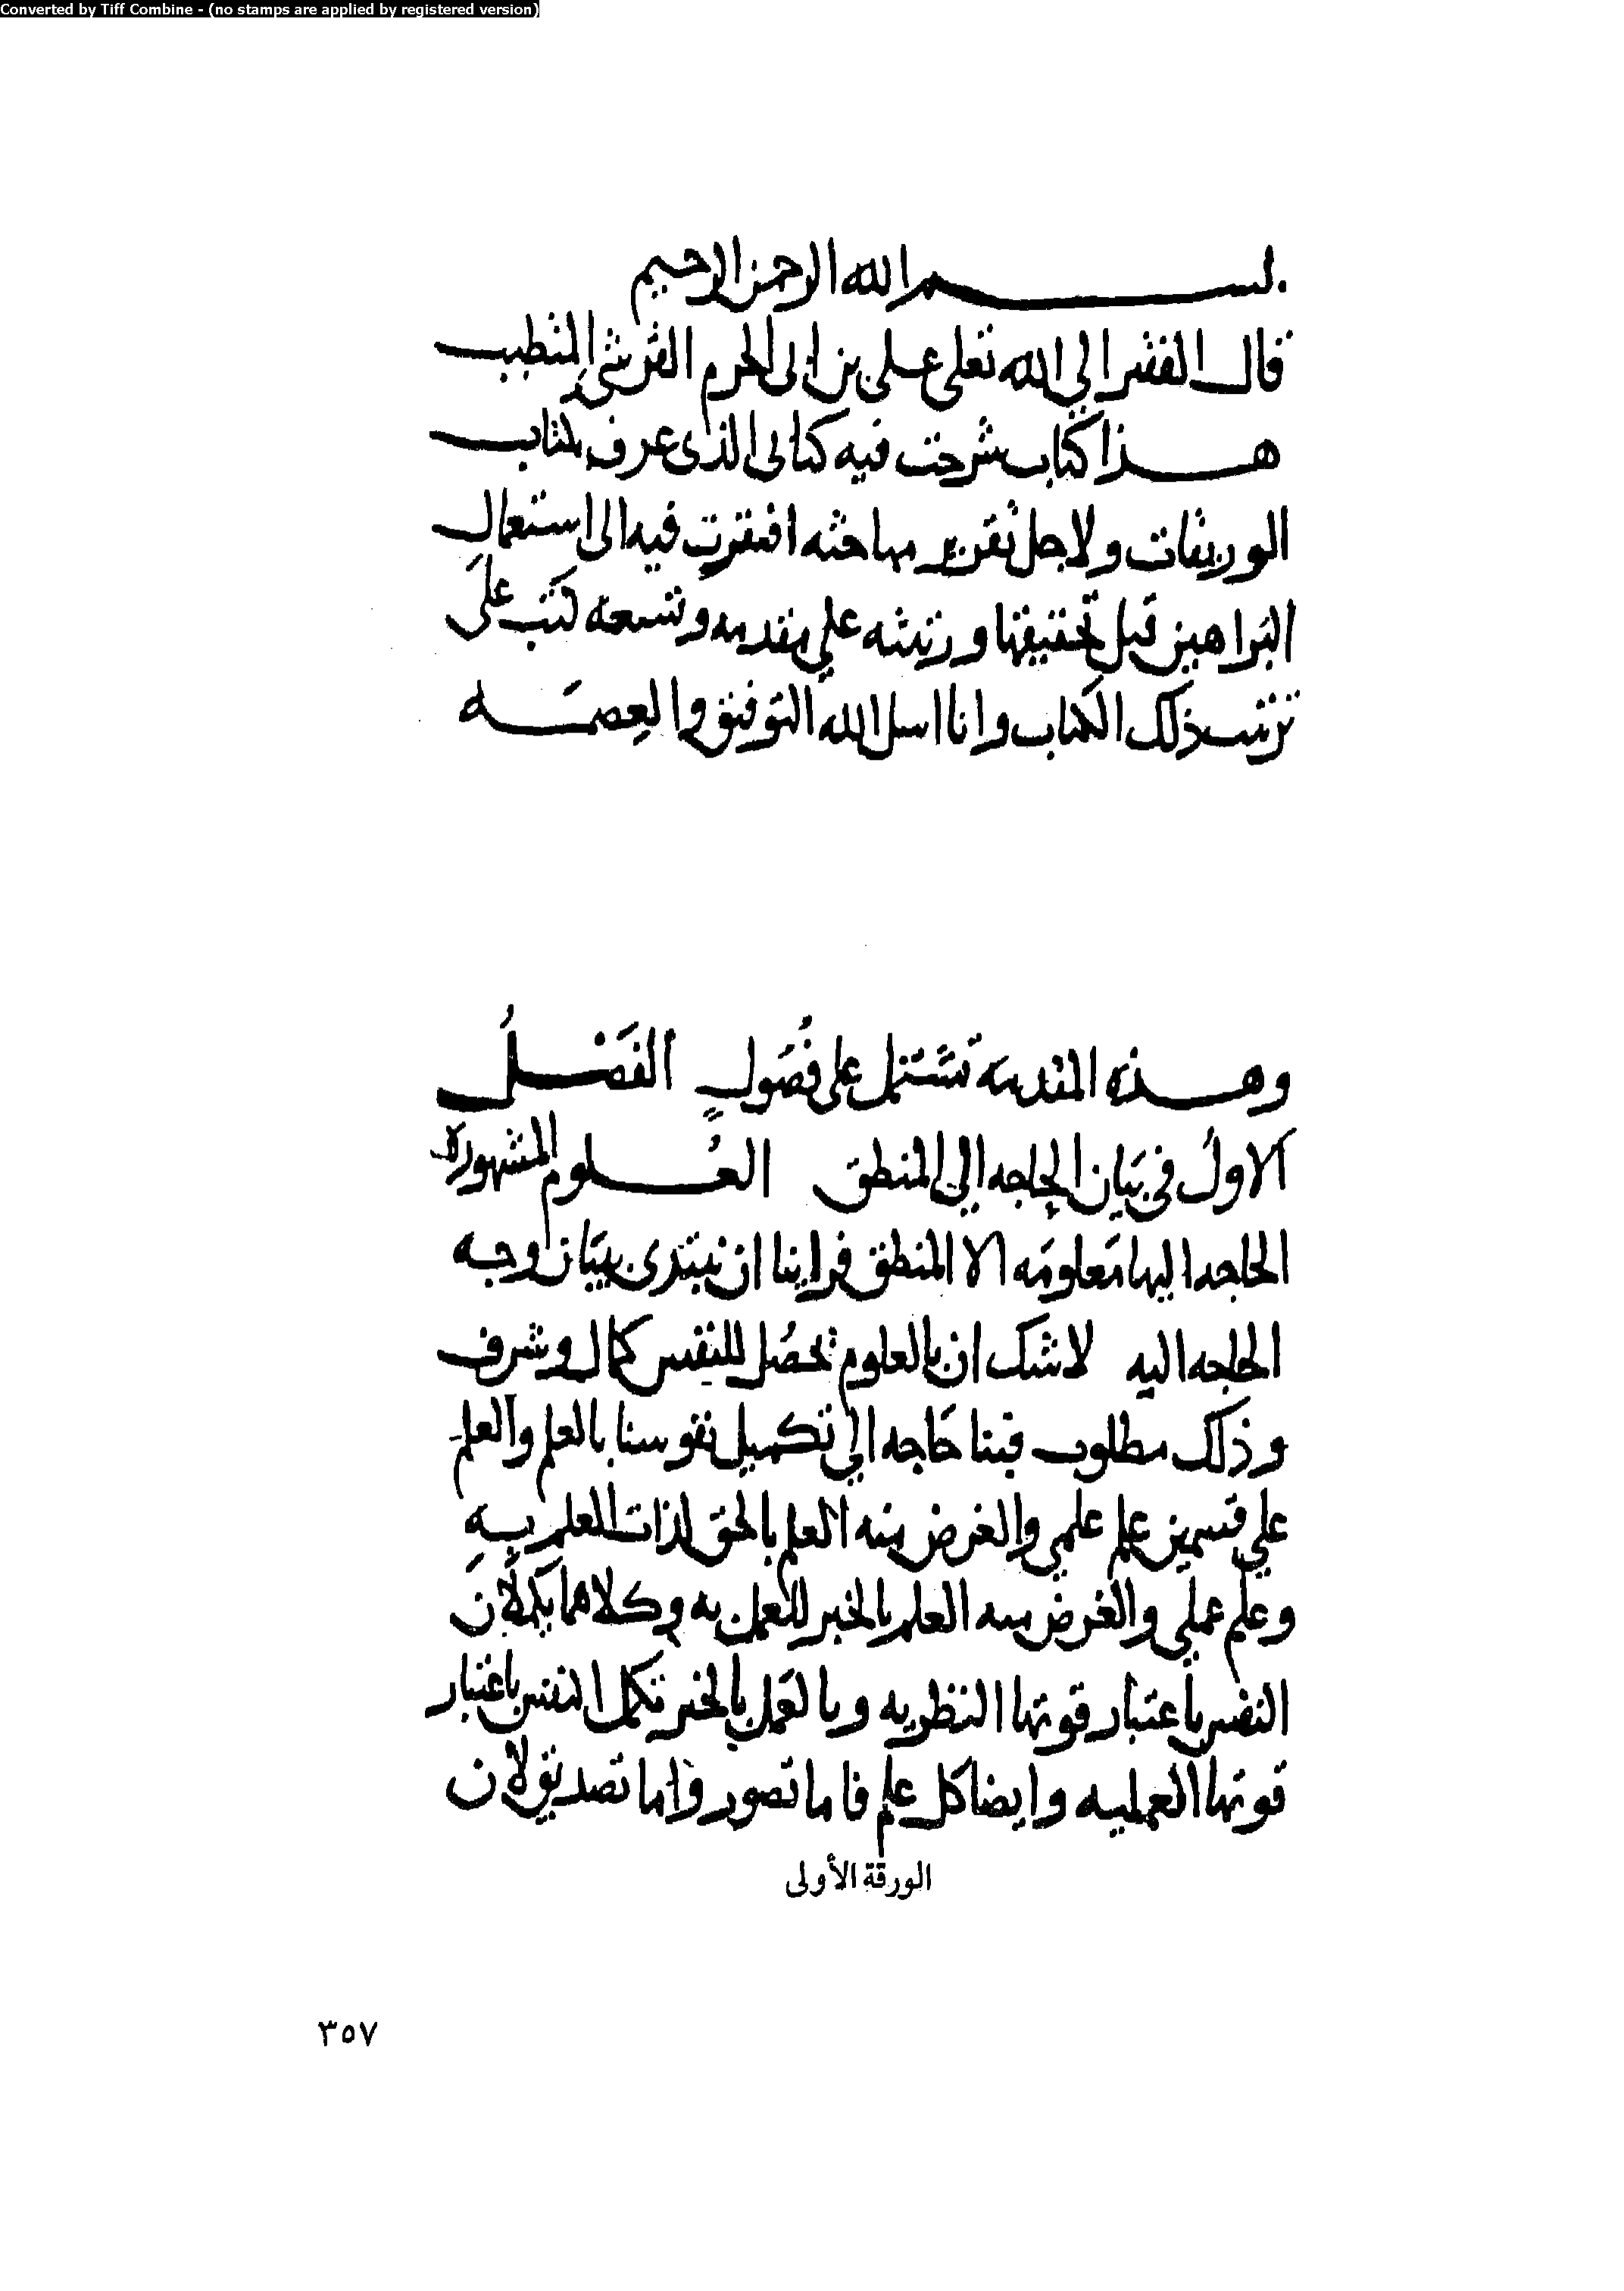 Converted by Tiff Combine - (no stamps are applied by registered version)
بسم الله الرحمن الرحيم
قال الفقير الى الله تعلى على بن ابى الحرم القرشى المتطبب
هذا كتاب شرحت فيه كتابى الذى عرف بكتاب
الوريقات ولاجل تقرير مباحثه افتقرت فيه الى استعمال
البراهين قبل تحقيقها ورتبته على مقدمه وتسعه كتب على
ترتيب ذلك الكتاب وانا اسل الله التوفيق والعصمه
وهذه المقدمه تشتمل على فُصُولٍ الفَصْلُ
الاولُ فى بَيَان الحاجه الي المنطق العُلوم المشهورة
الحاجه اليها مَعلومَه الا المنطق فراينا ان نبتدى ببيَان وجه
الحاجه اليه لا شك ان بالعلوم تحصُل للنفس كمال وشرف
وذلك مطلوب فبنا حَاجه الي تكميل نفوسنا بالعلم والعلم
علي قسمين علم علمي والغرض منه العلم بالحق لذات العلم به
وعلم عملي والغرض منه العلم بالخير للعمل به وكلاهما يكملان
النفس باعتبار قوتها النظريه وبالعَمل بالخير تكمل النفس باعتبار
قوتها العمليه وايضا كل علم فاما تصور واما تصديق لان
الورقة الأولى
٣٥٧